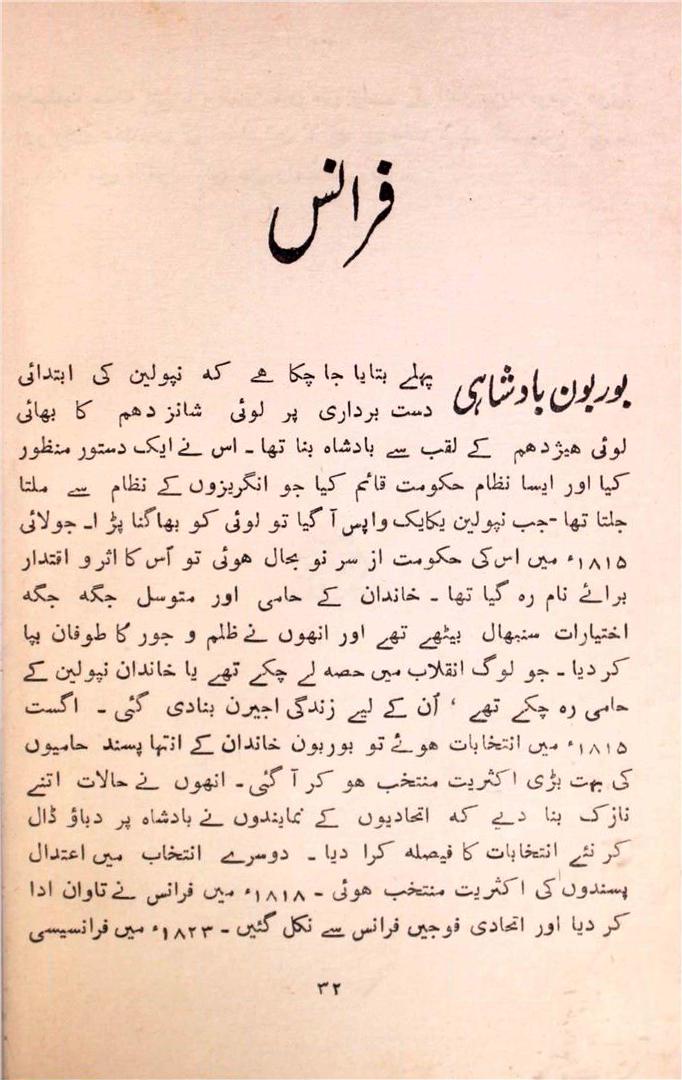 فرانس
بوربون بادشاہی
پہلے بتایا جا چکا ہے کہ نپولین کی ابتدائی
دست برداری پر لوئی شانز دھم کا بھائی
لوئی ھیژدھم کے لقب سے بادشاہ بنا تھا۔ اس نے ایک دستور منظور
کیا اور ایسا نظام حکومت قائم کیا جو انگریزوں کے نظام سے ملتا
جلتا تھا۔ جب نپولین یکایک واپس آ گیا تو لوئی کو بھاگنا پڑا۔ جولائی
۱۸۱۵ء میں اس کی حکومت از سر نو بحال ہوئی تو اُس کا اثر و اقتدار
برائے نام رہ گیا تھا۔ خاندان کے حامی اور متوسل جگہ جگہ
اختیارات سنبھال بیٹھے تھے اور انھوں نے ظلم و جور کا طوفان بپا
کر دیا۔ جو لوگ انقلاب میں حصہ لے چکے تھے یا خاندان نپولین کے
حامی رہ چکے تھے ، اُن کے لیے زندگی اجیرن بنا دی گئی۔ اگست
۱۸۱۵ء میں انتخابات ہوئے تو بوربون خاندان کے انتہا پسند حامیوں
کی بہت بڑی اکثریت منتخب ہو کر آ گئی۔ انھوں نے حالات اتنے
نازک بنا دیے کہ اتحادیوں کے نمایندوں نے بادشاہ پر دباؤ ڈال
کر نئے انتخابات کا فیصلہ کرا دیا۔ دوسرے انتخاب میں اعتدال
پسندوں کی اکثریت منتخب ہوئی۔ ۱۸۱۸ء میں فرانس نے تاوان ادا
کر دیا اور اتحادی فوجیں فرانس سے نکل گئیں۔ ۱۸۲۳ء میں فرانسیسی
۳۲